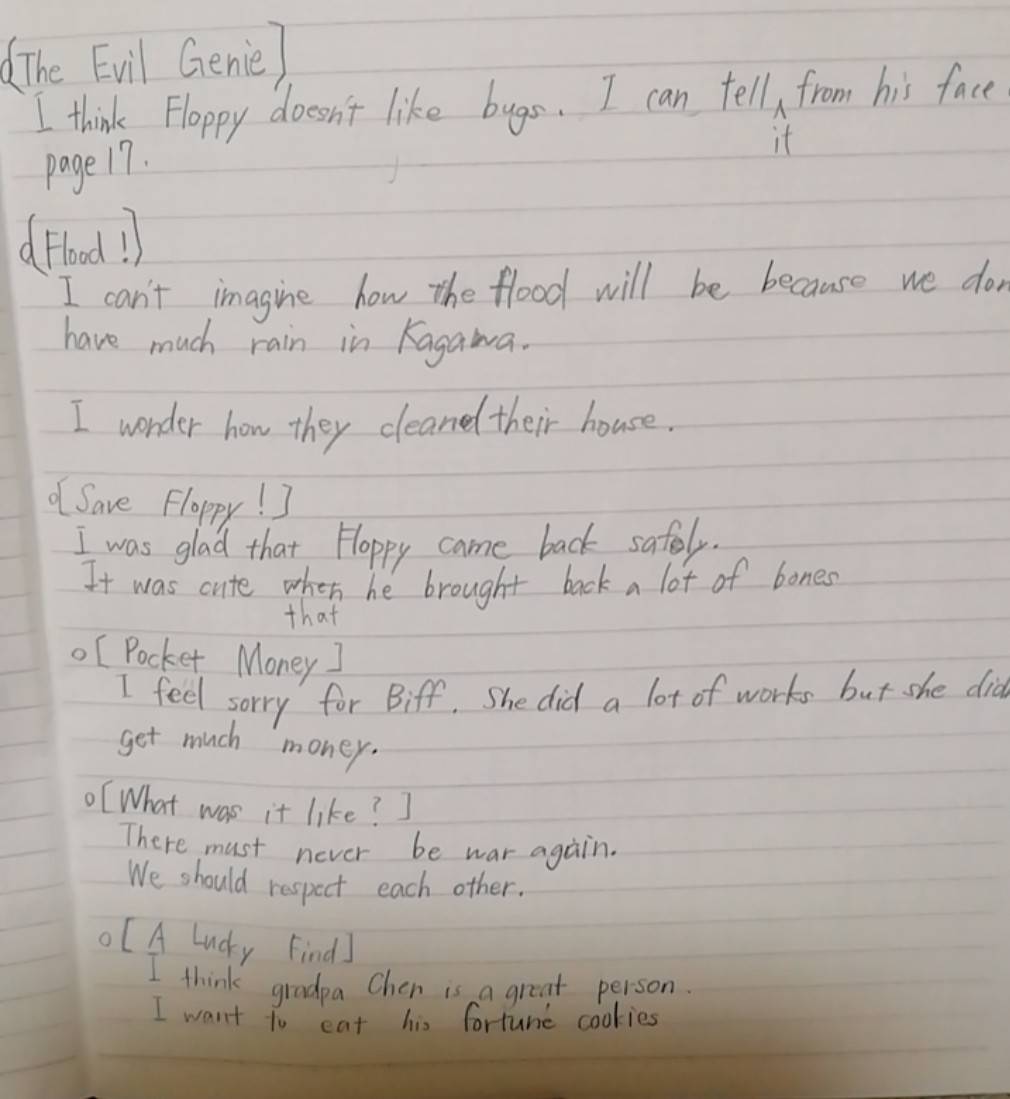 [The Evil Genie]
I think Floppy doesn't like bugs. I can tell from his face
it
page 17.
[Flood!]
I can't imagine how the flood will be because we don
have much rain in Kagawa.
I wonder how they cleaned their house.
[Save Floppy!]
I was glad that Floppy came back safely.
It was cute when he brought back a lot of bones
that
[Pocket Money]
I feel sorry for Biff. She did a lot of works but she did
get much money.
[What was it like?]
There must never be war again.
We should respect each other.
[A Lucky Find]
I think gradpa Chen is a great person.
I want to eat his fortune cookies